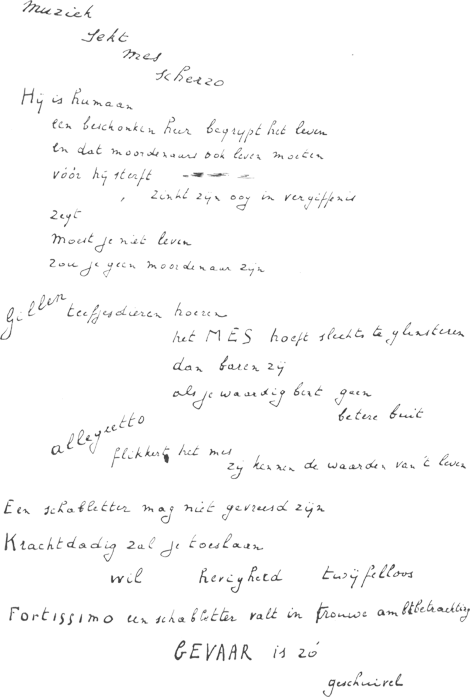 Muziek
Sekt
mes
scherzo
Hij is humaan
een beschonken heer begrypt het leven
en dat moordenaars ook leven moeten
vóór hij sterft
, zinkt zyn oog in vergiffenis
zegt
moest je niet leven
zou je geen moordenaar zijn
Gillen teefjesdieren hoeren
het MES hoeft slechts te glinsteren
dan baren zij
als je waardig bent geen
betere buit
allegretto
flikkert het mes
zij kennen de waarden van 't leven
Een schabletter mag niet gevreesd zijn
Krachtdadig zal je toeslaan
wil hevigheid twijfelloos
Fortissimo een schabletter valt in trouwe ambtbetrachting
GEVAAR is zó
geschuivel